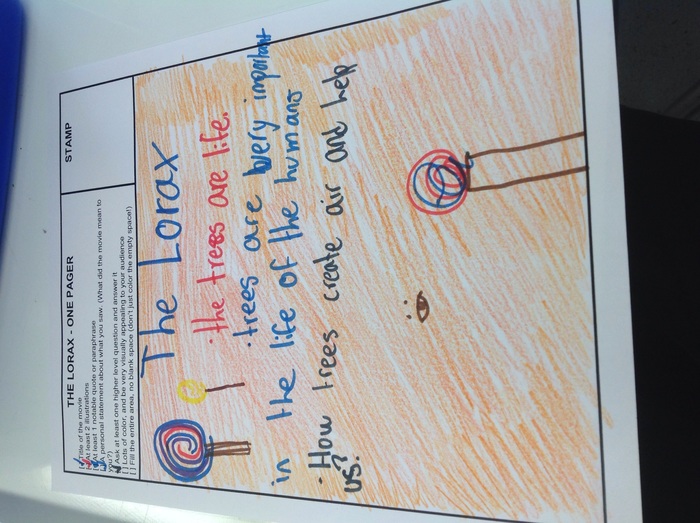 THE LORAX - ONE PAGER
STAMP
[ ] Title of the movie
[ ] At least 2 illustrations
[ ] At least 1 notable quote or paraphrase
[ ] A personal statement about what you saw. (What did the movie mean to
you?)
[ ] Ask at least one higher level question and answer it
[ ] Lots of color, and be very visually appealing to your audience
[ ] Fill the entire area, no blank space (don't just color the empty space!)
The Lorax
· the trees are life.
· trees are bery important
in the life of the humans
· How trees create air and help
us?